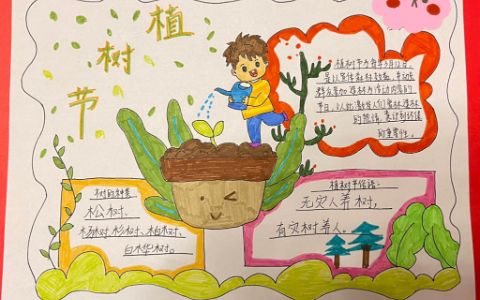 植树节
植树节为每年3月12日,
是以宣传森林效益,并动员
群众参加造林为活动内容的
节日,以此激发人们爱林造林
的热情,意识到环保
的重要性。
树的种类
松树、
杨树、杉树、柏树、
白桦树。
植树节俗语:
无灾人养树,
有灾树养人。